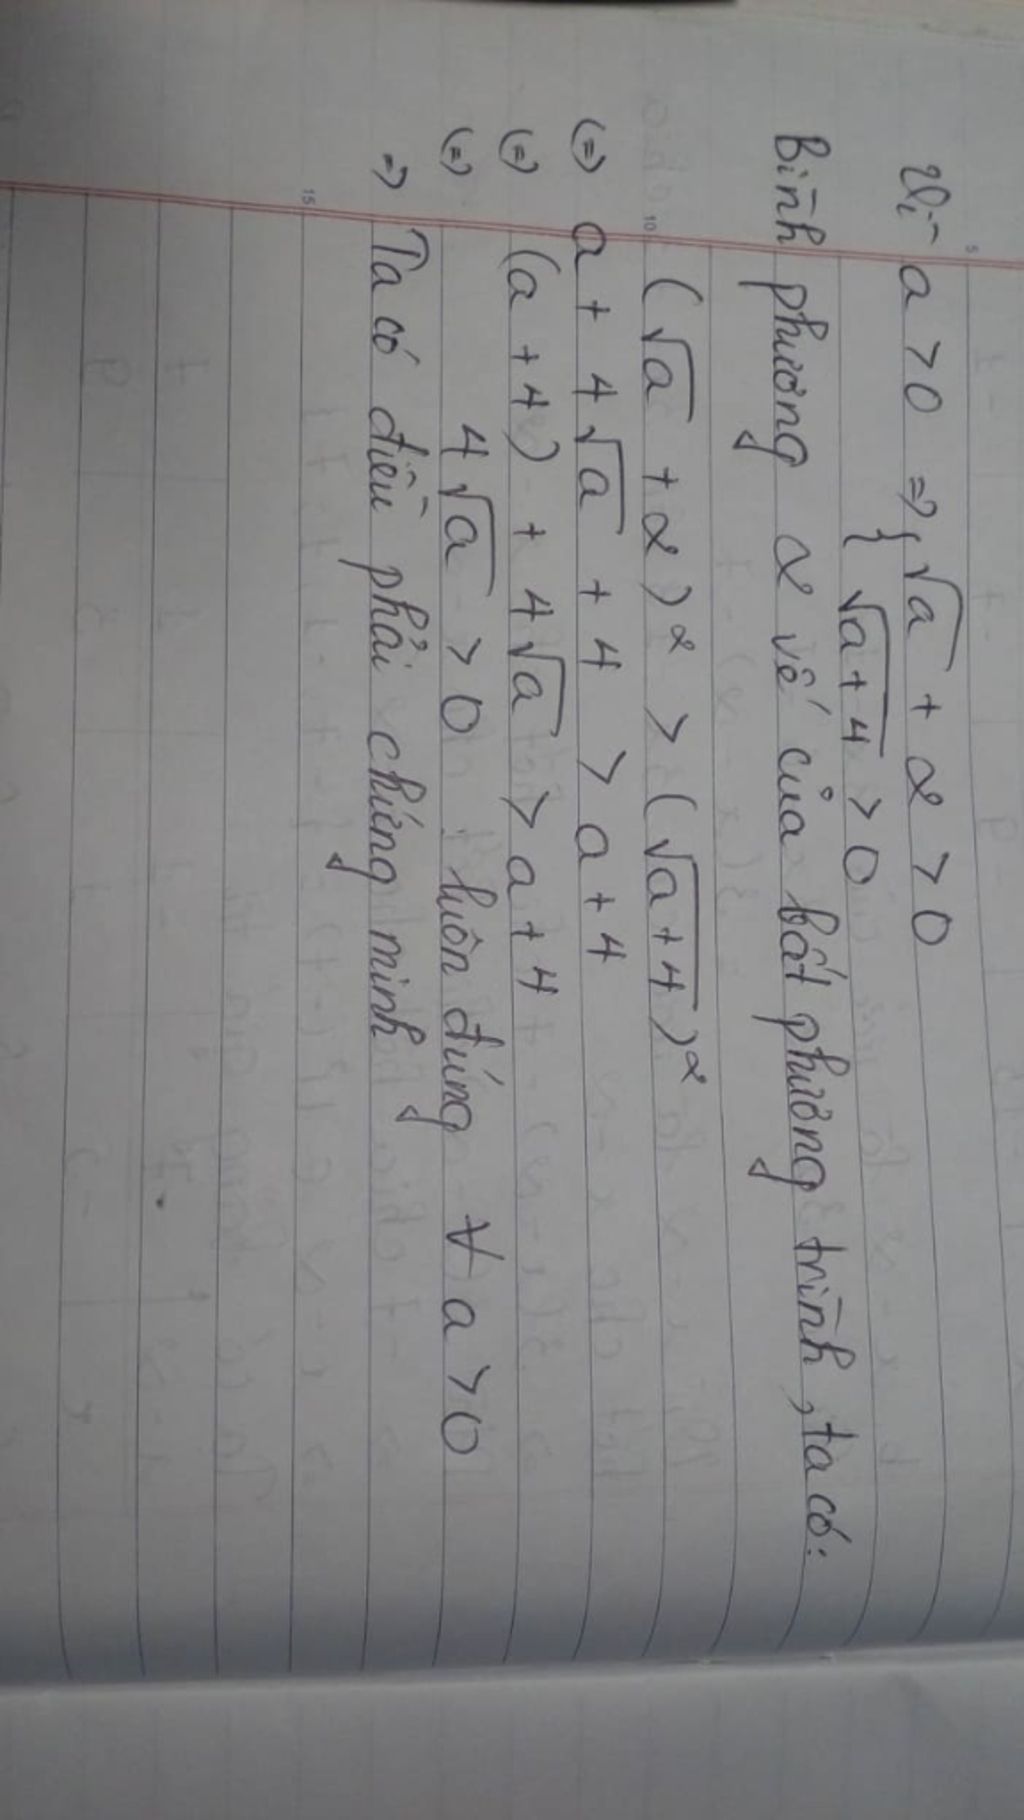 Vì a > 0 => { √a + 2 > 0
√(a+4) > 0
Bình phương 2 vế của bất phương trình, ta có:
(√a + 2)² > (√(a+4))²
(=) a + 4√a + 4 > a + 4
(=) (a + 4) + 4√a > a + 4
(=) 4√a > 0 luôn đúng ∀ a > 0
=> Ta có điều phải chứng minh
5
10
15